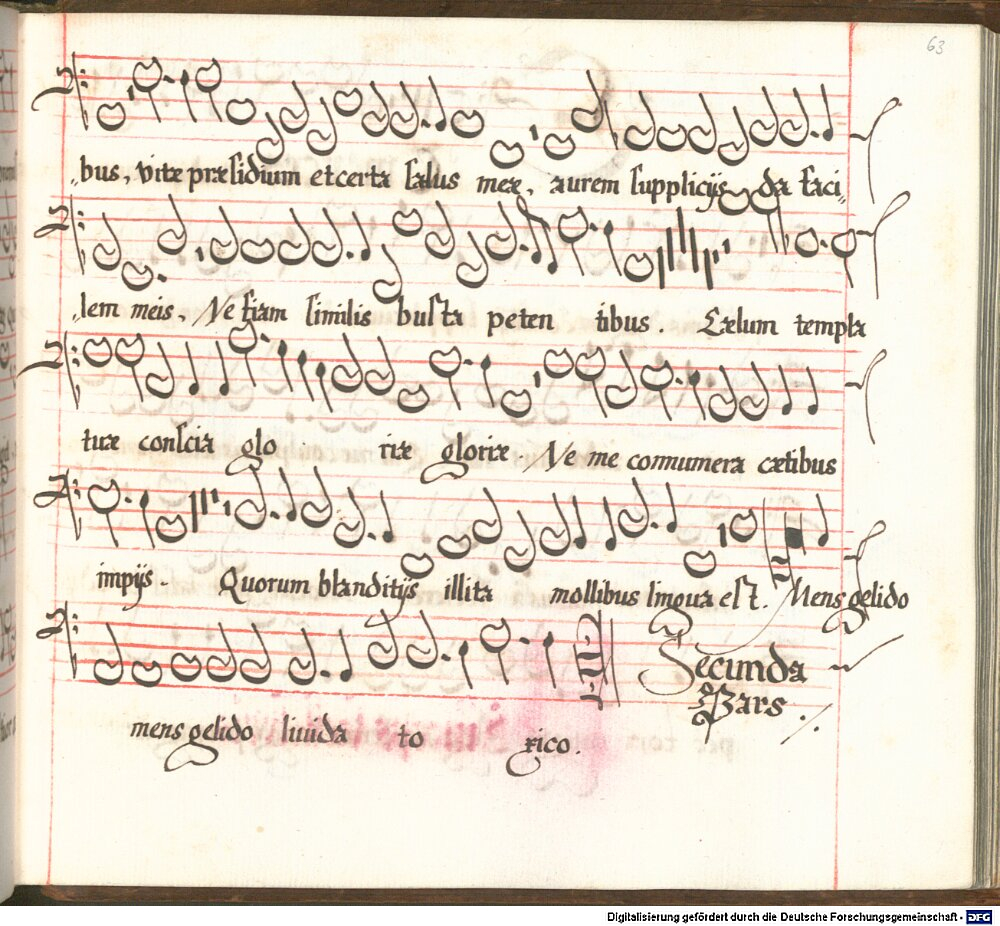 63
„bus, vitæ præsidium et certa salus meæ, aurem supplicijs da faci„
„lem meis, Ne fiam similis busta peten tibus. Cælum templa
turæ conscia glo riæ gloriæ. Ne me connumera cætibus
impijs. Quorum blanditijs illita mollibus lingua est. Mens gelido
mens gelido liuida to xico.
Secunda
Pars ./.
Digitalisierung gefördert durch die Deutsche Forschungsgemeinschaft - DFG